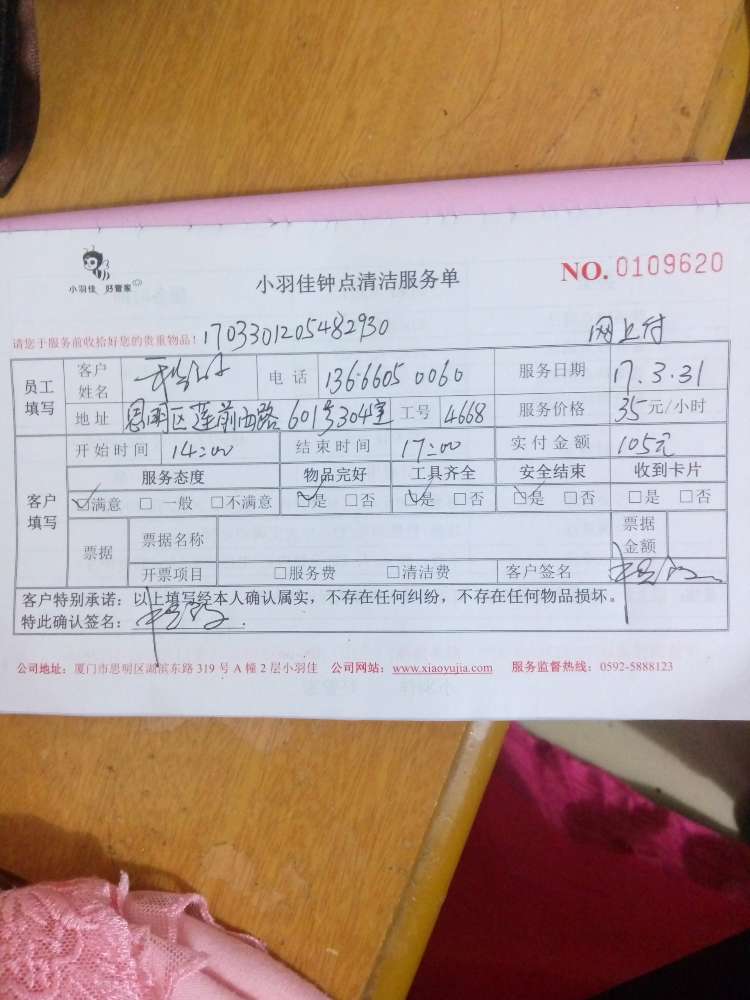 小羽佳 好管家
小羽佳钟点清洁服务单
NO. 0109620
请您于服务前收拾好您的贵重物品!
1703301205482930
网上付
员工填写
客户姓名
电话 136 6605 0060
服务日期 17.3.31
地址 思明区莲前西路601号304室
工号 4668
服务价格 35元/小时
客户填写
开始时间 14:00
结束时间 17:00
实付金额 105元
服务态度 物品完好 工具齐全 安全结束 收到卡片
☑满意 □一般 □不满意 ☑是 □否 ☑是 □否 ☑是 □否 □是 □否
票据
票据名称
票据金额
开票项目 □服务费 □清洁费 客户签名
客户特别承诺:以上填写经本人确认属实,不存在任何纠纷,不存在任何物品损坏。
特此确认签名:
公司地址:厦门市思明区湖滨东路319号A幢2层小羽佳 公司网站:www.xiaoyujia.com 服务监督热线:0592-5888123